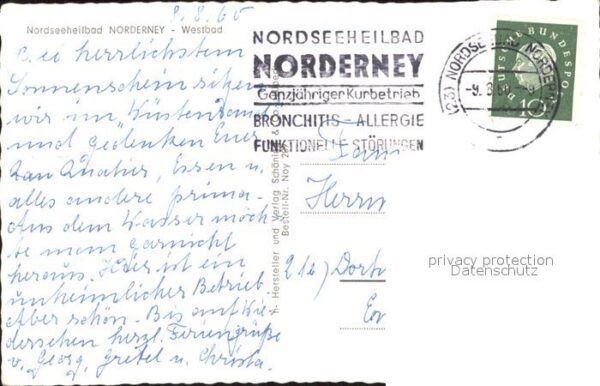 Nordseeheilbad NORDERNEY - Westbad
9.8.60
Bei herrlichstem
Sonnenschein sitzen
wir im "Küstendamp
und gedenken Euer
Quatier, Essen u.
alles andere prima.
Aus dem Wasser möch
te man garnicht
heraus. Hier ist ein
unheimlicher Betrieb.
Aber schön. Bis auf Wie
dersehen herzl. Feriengrüße
v. Georg, Gretel u. Christa.
Hersteller und Verlag Schöning &
Bestell-Nr. Noy
NORDSEEHEILBAD
NORDERNEY
Ganzjähriger Kurbetrieb
BRONCHITIS - ALLERGIE
FUNKTIONELLE STÖRUNGEN
(23) NORDSEEBAD NORDERNEY
-9.8.60
DEUTSCHE BUNDESPOST
10
Fam.
Herrn
21b) Dort
privacy protection
Datenschutz